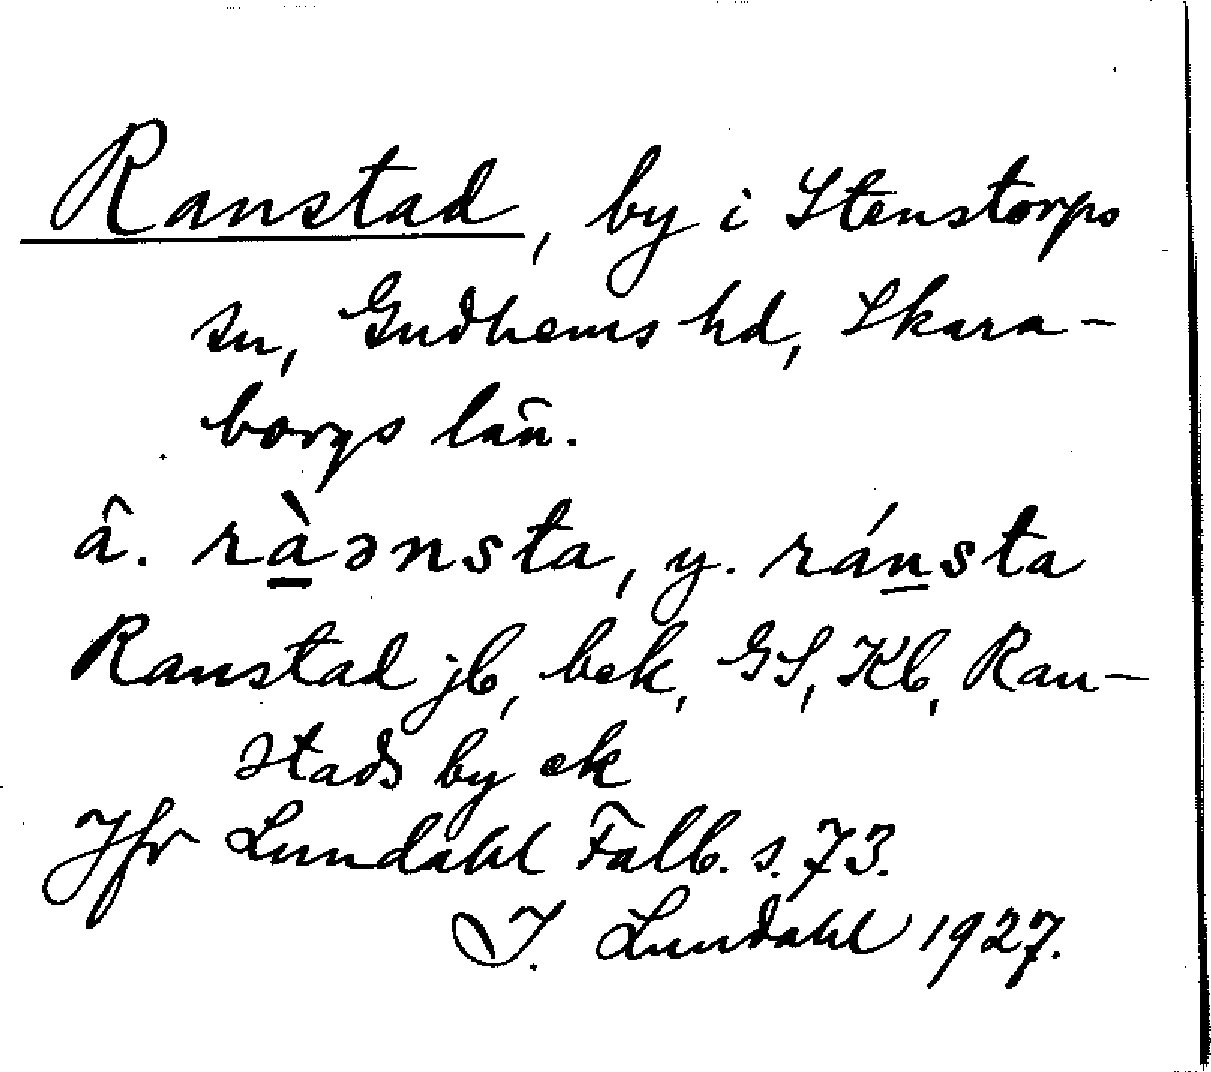 Ranstad, by i Stenstorps
sn, Gudhems hd, Skara-
borgs län.
ä. ràənsta, y. ránsta
Ranstad jb, bek, GS, Kb, Ran-
stads by ek
Jfr Lundahl Falb. s. 73.
I. Lundahl 1927.